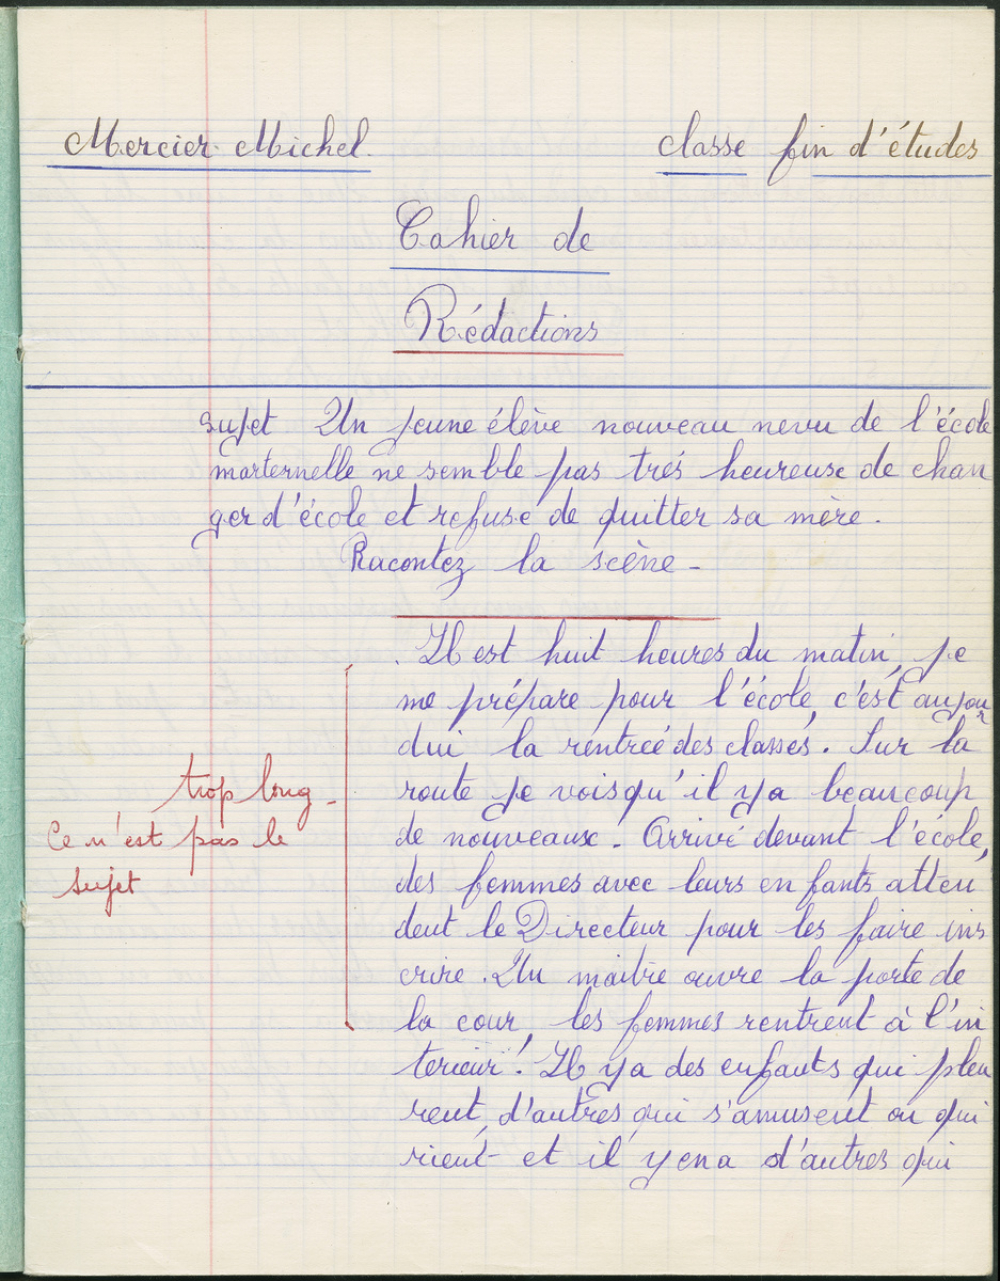 Mercier Michel.
classe fin d'études
Cahier de
Rédactions
sujet Un jeune élève nouveau nevu de l'école
marternelle ne semble pas trés heureuse de chan
ger d'école et refuse de quitter sa mère.
Racontez la scène -
Il est huit heures du matin, je
me prépare pour l'école, c'est aujour
dui la rentreé des classes. Sur la
route je vois qu'il y a beaucoup
de nouveaux. Arrivé devant l'école,
des femmes avec leurs enfants atten
dent le Directeur pour les faire ins
crire. Un maitre ouvre la porte de
la cour, les femmes rentrent à l'in
terieur. Il y a des enfants qui pleu
rent, d'autres qui s'amusent ou qui
rient et il y en a d'autres qui
trop long -
Ce n'est pas le
sujet